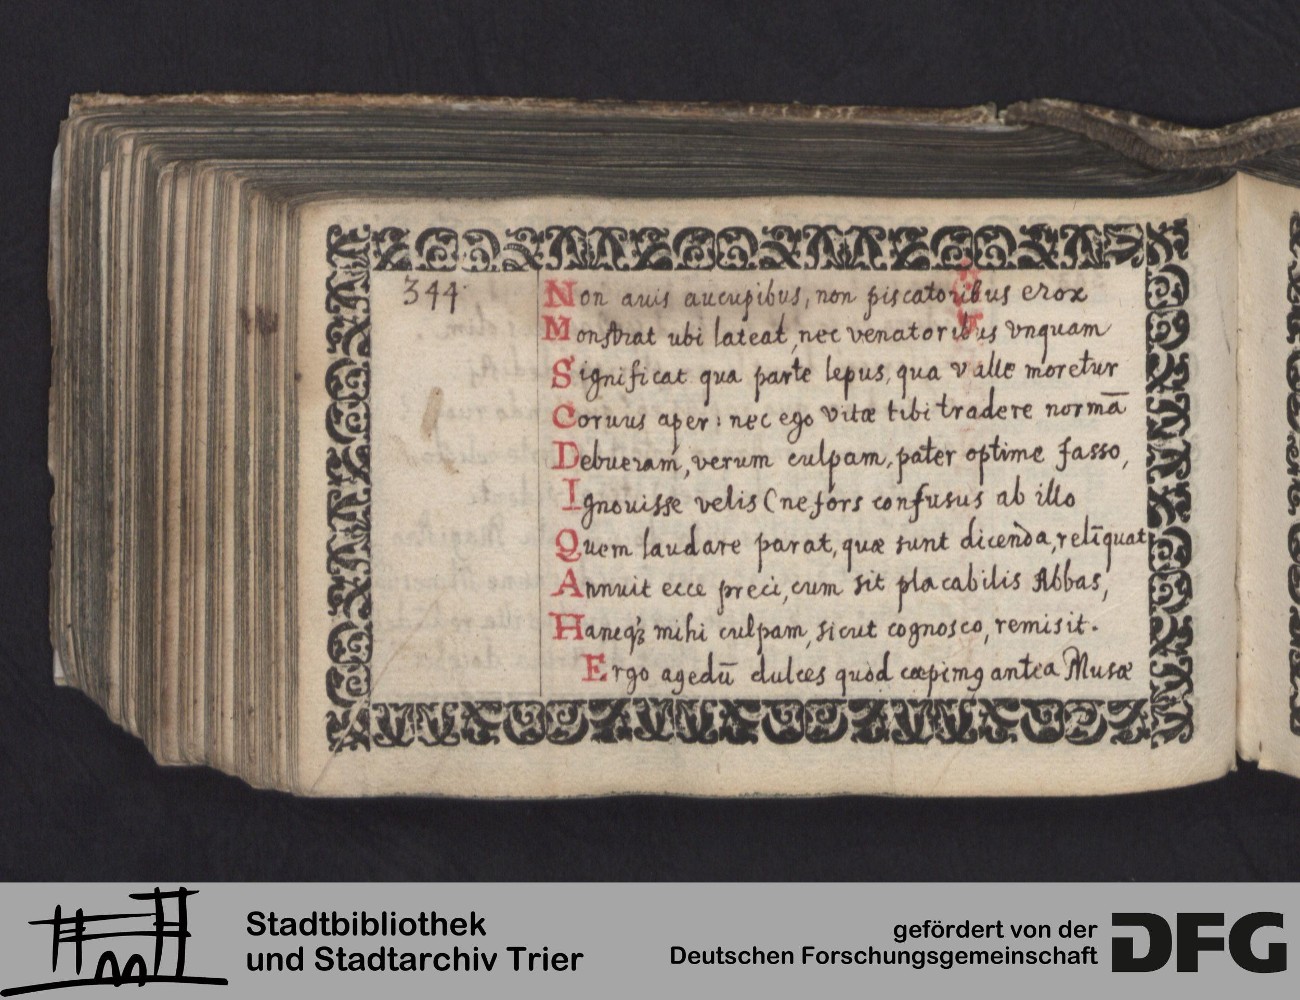 344
Non auis aucupibus, non piscatoribus erox
Monstrat ubi lateat, nec venatoribus vnquam
Significat qua parte lepus, qua valle moretur
Coruus aper: nec ego vitæ tibi tradere normā
Debueram, verum culpam, pater optime fasso,
Ignouisse velis (ne fors confusus ab illo
Quem laudare parat, quæ sunt dicenda, relīquat
Annuit ecce preci, cum sit placabilis Abbas,
Haneqȝ mihi culpam, sicut cognosco, remisit.
Ergo agedū dulces quòd cœpimꝯ antea Musæ
Stadtbibliothek
und Stadtarchiv Trier
gefördert von der
Deutschen Forschungsgemeinschaft
DFG